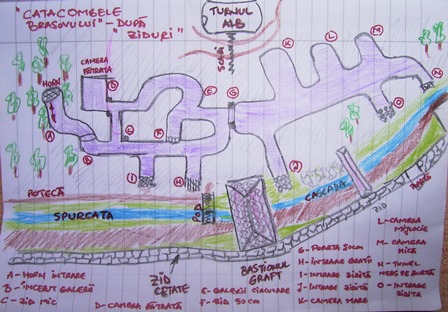 "CATACOMBELE
BRASOVULUI" - DUPĂ
"ZIDURI"
TURNUL
ALB
CAMERA
PĂTRATĂ
HORN
SCĂRI
A
B
C
D
E
F
G
H
I
J
K
L
M
N
O
POTECĂ
SPURCATA
POD
CASCADA
ZID
ZID
CETATE
BASTIONUL
GRAFT
A - HORN INTRARE
B - ÎNCEPUT GALERII
C - ZID MIC
D - CAMERA PĂTRATĂ
E - GALERII CIRCULARE
F - ZID 50cm
G - POARTĂ 50cm
H - INTRARE GRATII
I - INTRARE ZIDITĂ
J - INTRARE ZIDITĂ
K - CAMERA MARE
L - CAMERA
MIJLOCIE
M - CAMERA
MICĂ
N - TUNEL
MERS PE BURTĂ
O - INTRARE
ZIDITĂ